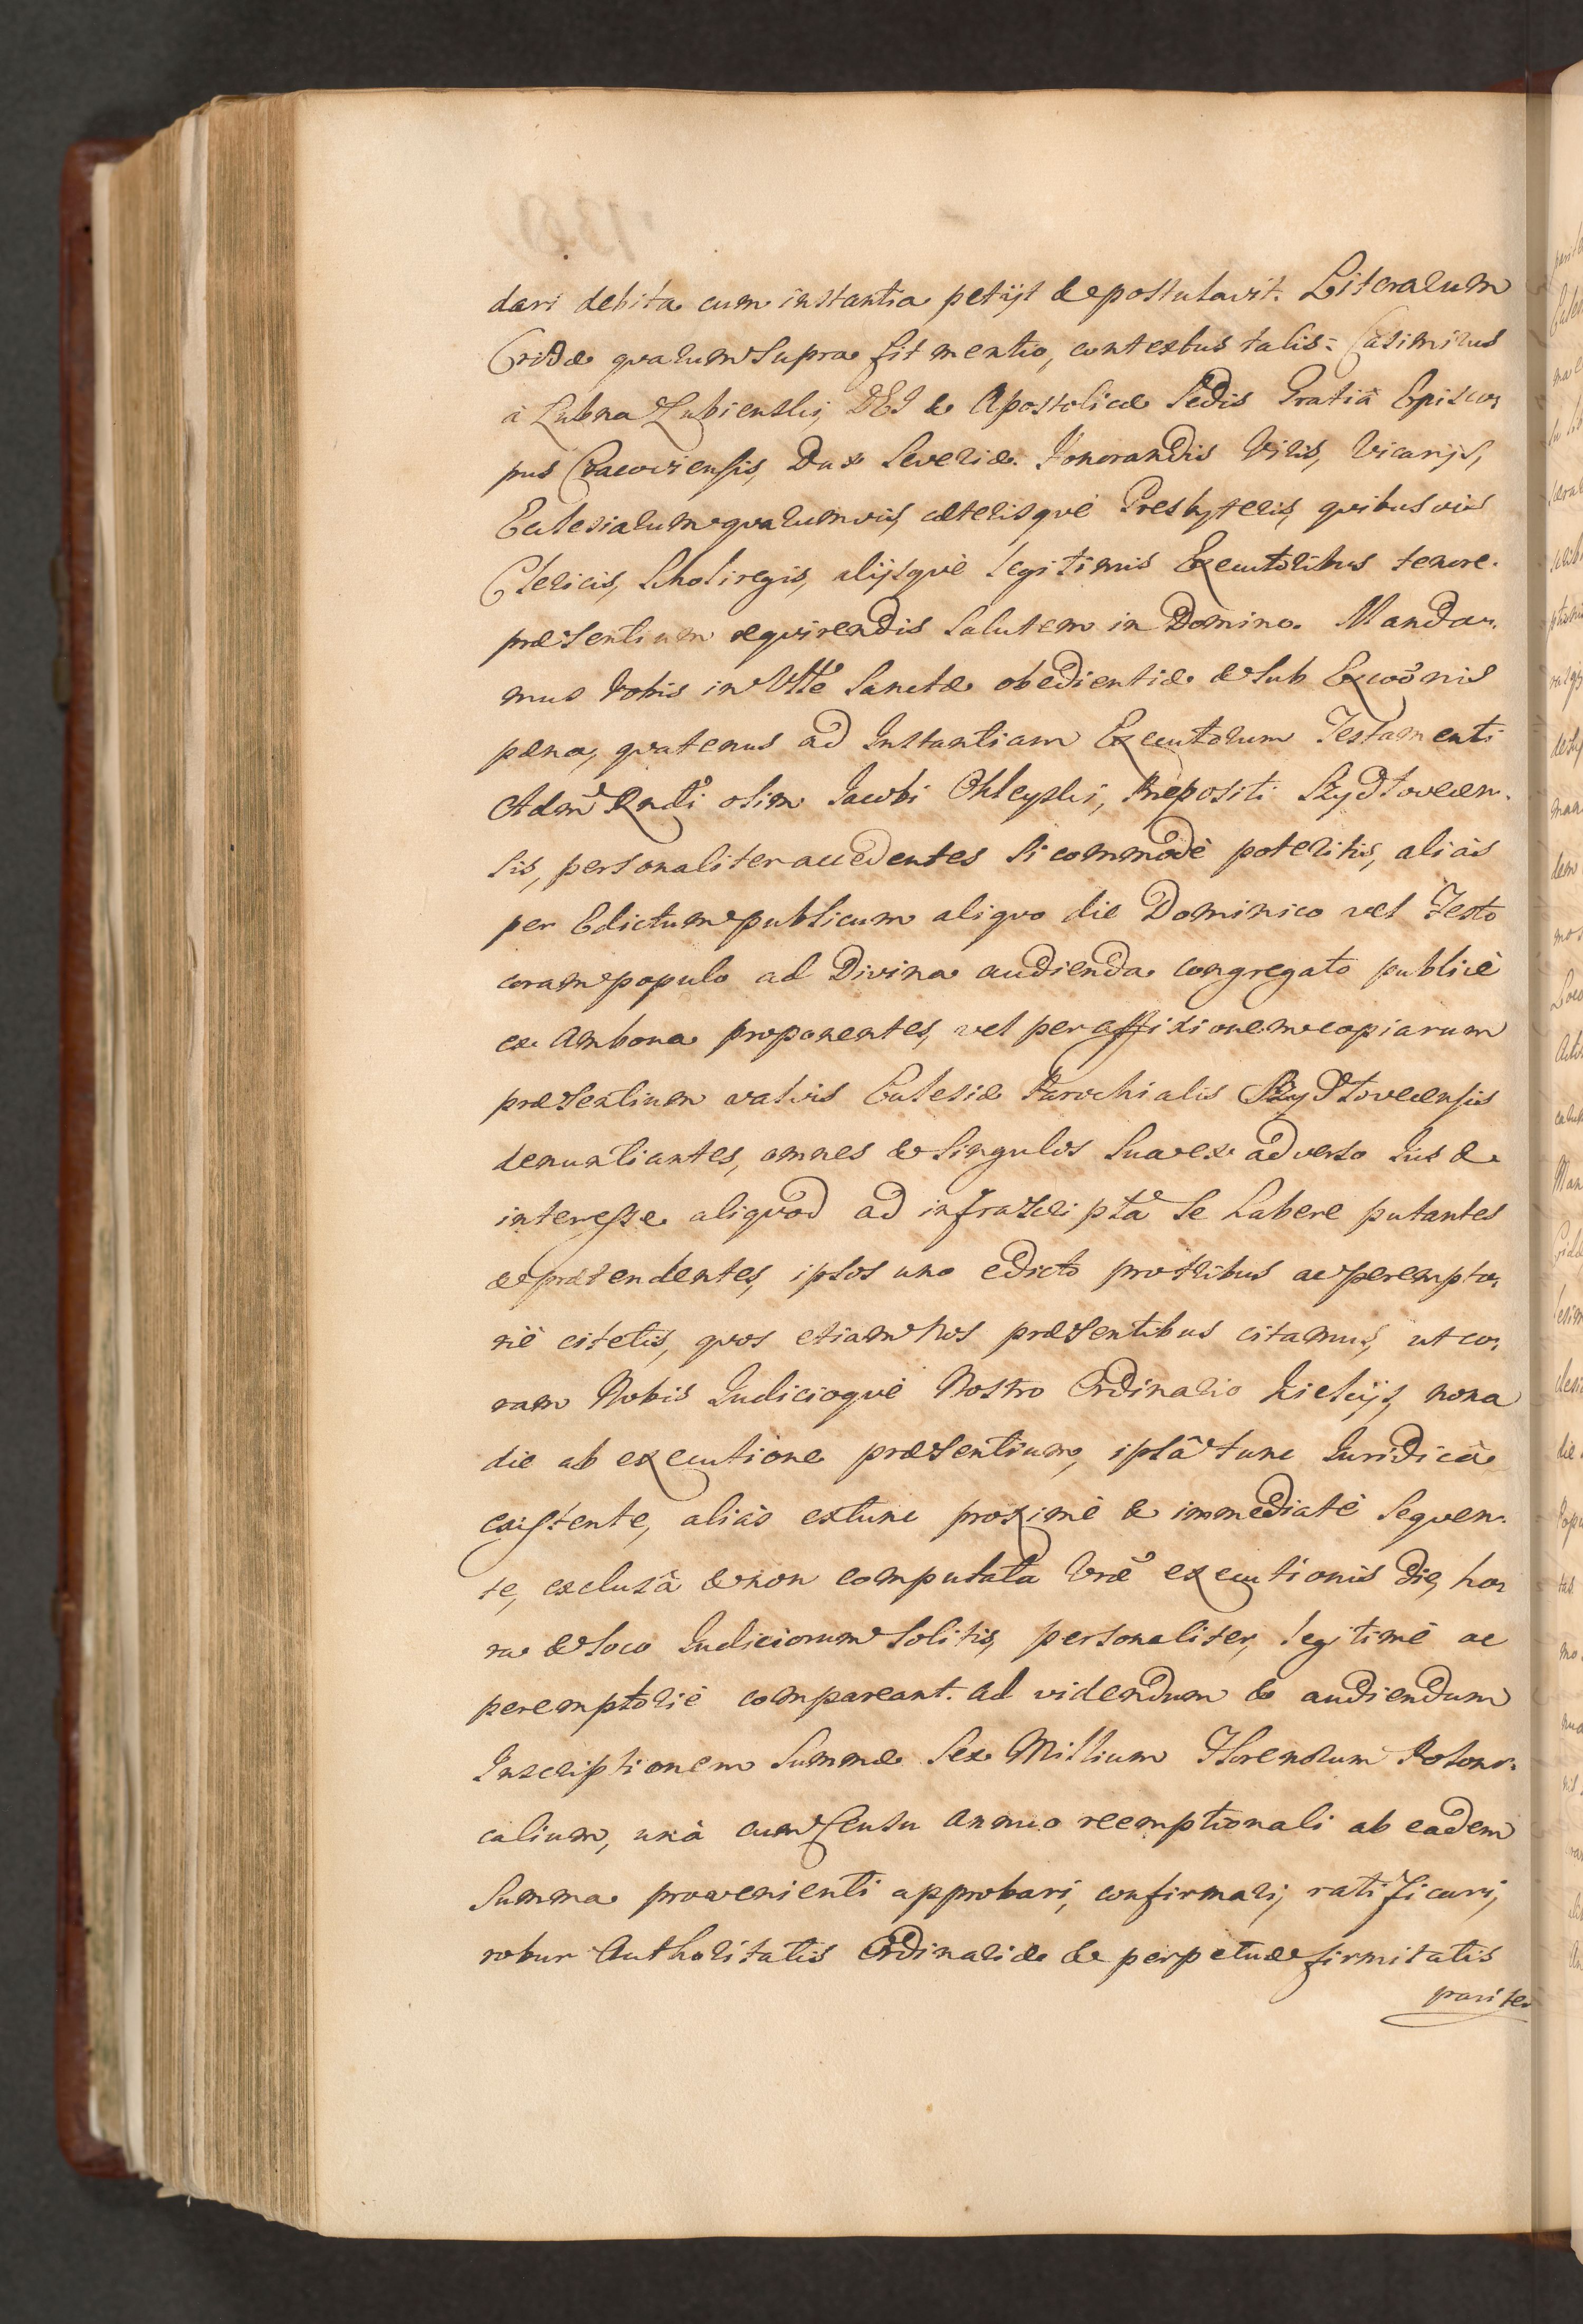 dari debita cum instantia petijt & postulavit. Literarum
Cridæ quarum supra fit mentio, contextus talis: Casimirus
à Lubna Lubienski, DEI & Apostolicæ Sedis Gratiâ Episco,
pus Cracoviensis, Dux Severiæ. Honorandis Viris, Vicarijs,
Eclesiarum quarumvis, cæterisquè Presbyteris, quibusvis
Clericis, Scholiregis, alijsquè legitimis Executoribus tenore.
præsentium requirendis Salutem in Domino. Manda,
mus Vobis in Vtte Sanctæ obedientiæ & sub Excoõnis
pæna, quatenus ad Instantiam Executorum Testamenti
Adm Rndi olim Jacobi Ohleyski, Præpositi Szydłovecen,
sis, personaliter accedentes si commodè poteritis, aliàs
per Edictum publicum aliquo die Dominico vel Festo
coram populo ad Divina audienda congregato publicè
ex Ambona proponentes, vel per affixionem copiarum
præsentium valvis Eclesiæ Parochialis Szydłovecensis
denuntiantes, omnes & singulos sua ex adverso Jus &
interesse aliquod ad infrascripta se habere putantes
& prætendentes, ipsos uno edicto pro tribus ac perempto,
riè citetis, quos etiam Nos præsentibus citamus, ut co,
ram Nobis Iudicioquè Nostro Ordinario Kielcijs, nona
die ab executione præsentium, ipsâ tunc Iuridicâ
existente, aliàs extunc proximè & immediatè sequen,
te, exclusâ & non computata Vræ executionis die, ho,
ra & loco Iudiciorum solitis, personaliter, legitimè ac
peremptoriè compareant. ad videndum & audiendum
Inscriptionem Summæ Sex Millium Florenorum Poloni,
calium, unà cum Censu annuo reemptionali ab eadem
Summa provenienti approbari, confirmari, ratificari,
robur Authoritatis Ordinariæ & perpetuæ firmitatis
pariter